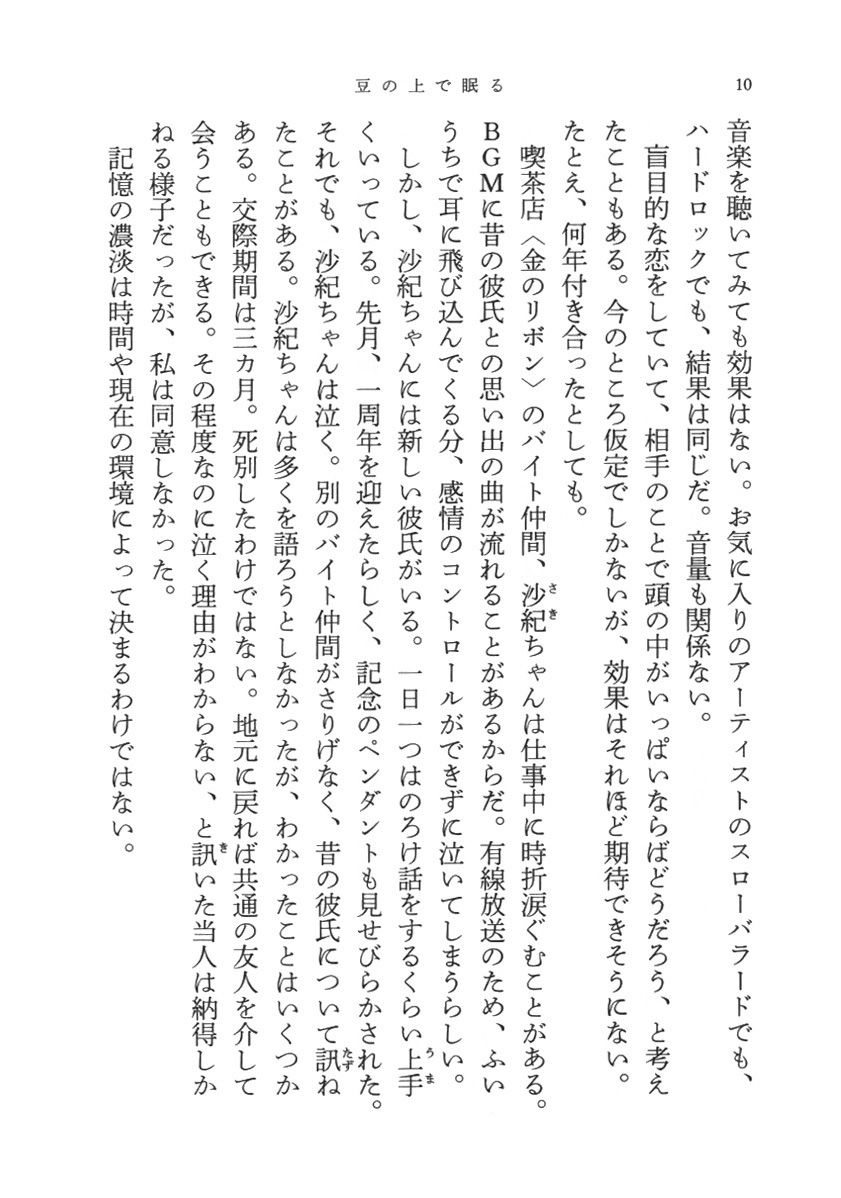 豆の上で眠る
10
音楽を聴いてみても効果はない。お気に入りのアーティストのスローバラードでも、
ハードロックでも、結果は同じだ。音量も関係ない。
盲目的な恋をしていて、相手のことで頭の中がいっぱいならばどうだろう、と考え
たこともある。今のところ仮定でしかないが、効果はそれほど期待できそうにない。
たとえ、何年付き合ったとしても。
喫茶店〈金のリボン〉のバイト仲間、沙紀ちゃんは仕事中に時折涙ぐむことがある。
BGMに昔の彼氏との思い出の曲が流れることがあるからだ。有線放送のため、ふい
うちで耳に飛び込んでくる分、感情のコントロールができずに泣いてしまうらしい。
しかし、沙紀ちゃんには新しい彼氏がいる。一日一つはのろけ話をするくらい上手
くいっている。先月、一周年を迎えたらしく、記念のペンダントも見せびらかされた。
それでも、沙紀ちゃんは泣く。別のバイト仲間がさりげなく、昔の彼氏について訊ね
たことがある。沙紀ちゃんは多くを語ろうとしなかったが、わかったことはいくつか
ある。交際期間は三カ月。死別したわけではない。地元に戻れば共通の友人を介して
会うこともできる。その程度なのに泣く理由がわからない、と訊いた当人は納得しか
ねる様子だったが、私は同意しなかった。
記憶の濃淡は時間や現在の環境によって決まるわけではない。